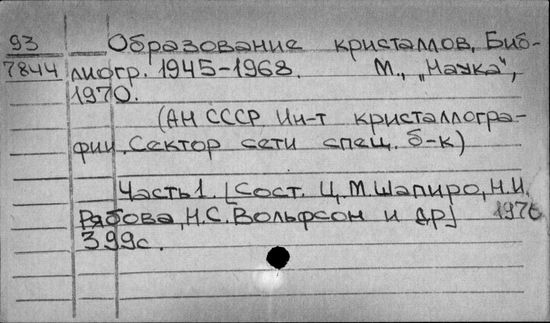 93 Образование кристаллов, Биб-
7844 лиогр. 1945-1968. М., „Наука",
1970.
(АН СССР Ин-т кристаллогра-
фии. Сектор сети спец. б-к)
Часть 1. [Сост. Ц.М. Шапиро, Н.И.
Рябова, Н.С. Вольфсон и др]
399с.